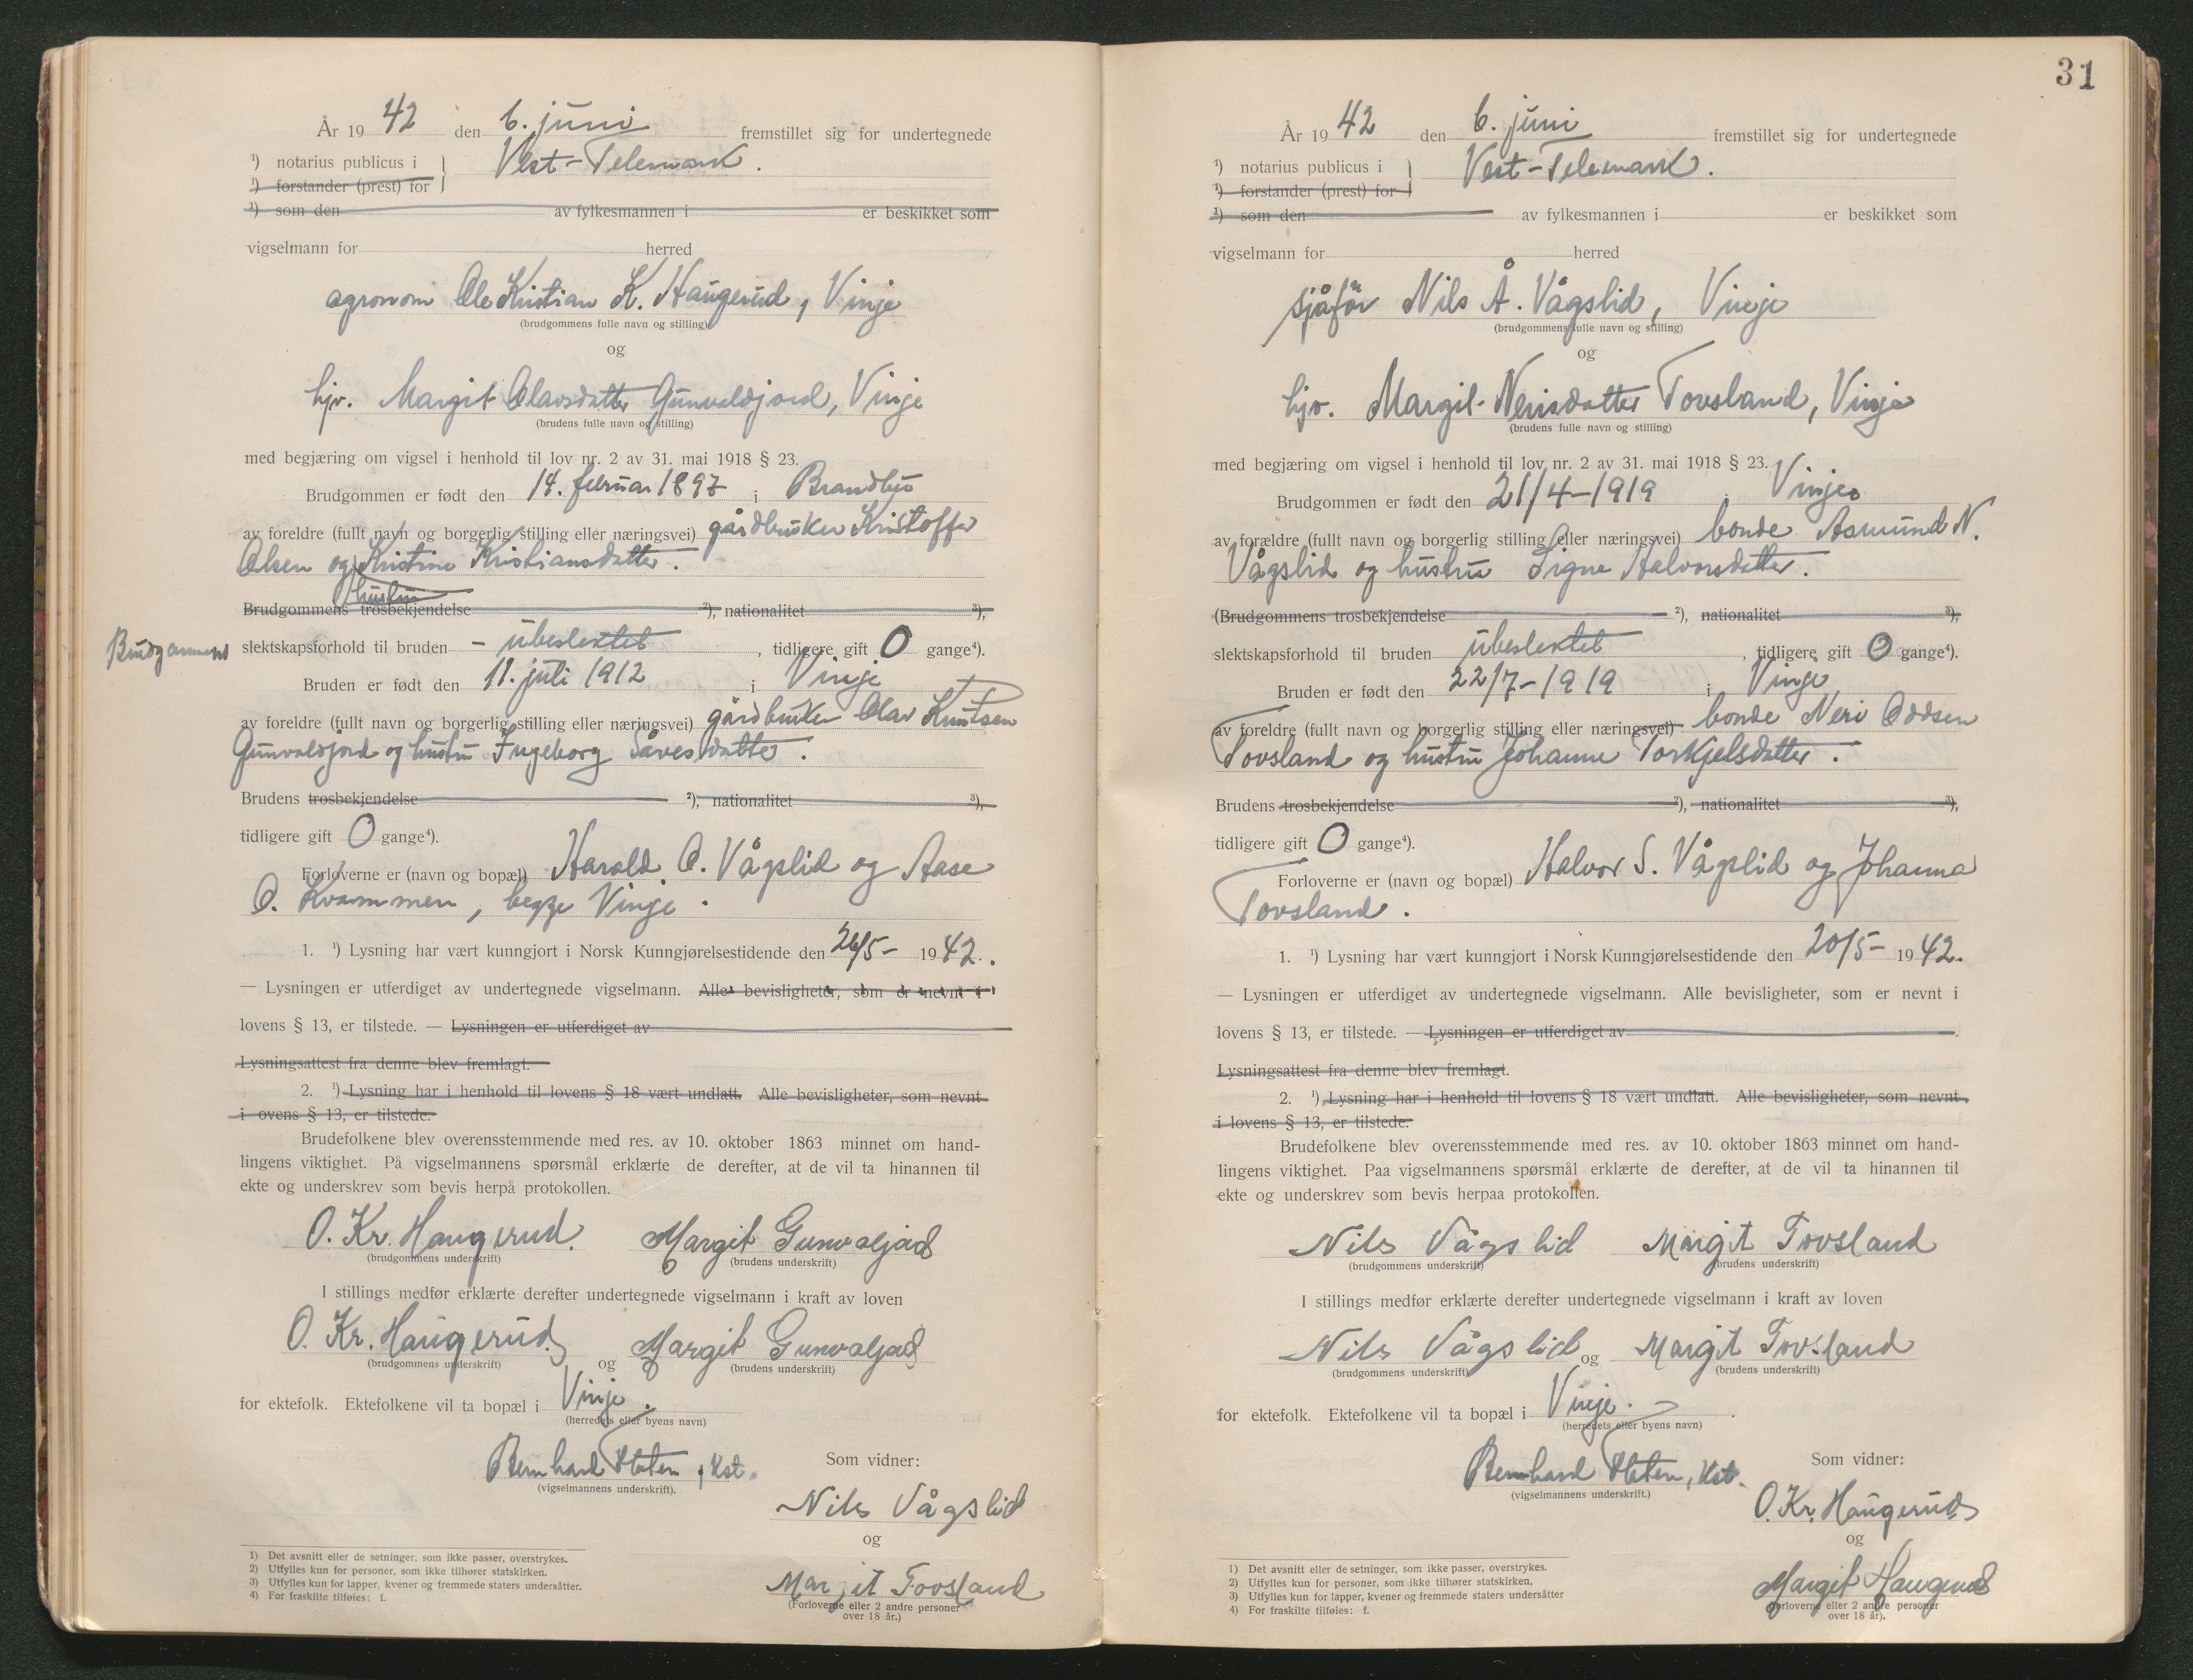 År 1942 den 6. juni fremstillet sig for undertegnede
¹) notarius publicus i } Vest-Telemark.
¹) forstander (prest) for
¹) som den av fylkesmannen i er beskikket som
vigselmann for herred
agronom Ole Kristian K. Haugerud, Vinje
(brudgommens fulle navn og stilling)
og
hjv. Margit Olavsdatter Gunvaldjord, Vinje
(brudens fulle navn og stilling)
med begjæring om vigsel i henhold til lov nr. 2 av 31. mai 1918 § 23.
Brudgommen er født den 14. februar 1897 i Brandbu
av foreldre (fullt navn og borgerlig stilling eller næringsvei) gårdbruker Kristoffer
Olsen og Kristine Kristiansdatter.
hustru
Brudgommens trosbekjendelse ²), nationalitet ³),
Brudgommens slektskapsforhold til bruden - ubeslektet , tidligere gift 0 gange⁴).
Bruden er født den 11. juli 1912 i Vinje
av foreldre (fullt navn og borgerlig stilling eller næringsvei) gårdbruker Olav Knutsen
Gunvaldjord og hustru Ingeborg Såvesdatter.
Brudens trosbekjendelse ²), nationalitet ³),
tidligere gift 0 gange⁴).
Forloverne er (navn og bopæl) Harald O. Vågslid og Aase
O. Kvammen, begge Vinje.
1. ¹) Lysning har vært kunngjort i Norsk Kunngjørelsestidende den 26/5- 1942.
— Lysningen er utferdiget av undertegnede vigselmann. Alle bevisligheter, som er nevnt i
lovens § 13, er tilstede. — Lysningen er utferdiget av
Lysningsattest fra denne blev fremlagt.
2. ¹) Lysning har i henhold til lovens § 18 vært undlatt. Alle bevisligheter, som nevnt
i ovens § 13, er tilstede.
Brudefolkene blev overensstemmende med res. av 10. oktober 1863 minnet om hand-
lingens viktighet. På vigselmannens spørsmål erklærte de derefter, at de vil ta hinannen til
ekte og underskrev som bevis herpå protokollen.
O. Kr. Haugerud. Margit Gunvaljord
(brudgommens underskrift) (brudens underskrift)
I stillings medfør erklærte derefter undertegnede vigselmann i kraft av loven
O. Kr. Haugerud og Margit Gunvaljord
(brudgommens underskrift) (brudens underskrift)
for ektefolk. Ektefolkene vil ta bopæl i Vinje.
(herredets eller byens navn)
Bernhard Haten, kst.
(vigselmannens underskrift).
Som vidner:
Nils Vågslid
og
Margit Tovsland
(Forloverne eller 2 andre personer
over 18 år.)
1) Det avsnitt eller de setninger, som ikke passer, overstrykes.
2) Utfylles kun for personer, som ikke tilhører statskirken.
3) Utfylles kun for lapper, kvener og fremmede staters undersåtter.
4) For fraskilte tilføies: f.
31
År 1942 den 6. juni fremstillet sig for undertegnede
¹) notarius publicus i } Vest-Telemark.
¹) forstander (prest) for
¹) som den av fylkesmannen i er beskikket som
vigselmann for herred
sjåfør Nils Å. Vågslid, Vinje
(brudgommens fulle navn og stilling)
og
hjv. Margit Nerisdatter Tovsland, Vinje
(brudens fulle navn og stilling)
med begjæring om vigsel i henhold til lov nr. 2 av 31. mai 1918 § 23.
Brudgommen er født den 21/4-1919 i Vinje
av forældre (fullt navn og borgerlig stilling eller næringsvei) bonde Asmund N.
Vågslid og hustru Signe Halvorsdatter.
(Brudgommens trosbekjendelse ²), nationalitet ³),
slektskapsforhold til bruden ubeslektet , tidligere gift 0 gange⁴).
Bruden er født den 22/7-1919 i Vinje
av foreldre (fullt navn og borgerlig stilling eller næringsvei) bonde Neri Oddsen
Tovsland og hustru Johanne Torkjelsdatter.
Brudens trosbekjendelse ²), nationalitet ³),
tidligere gift 0 gange⁴).
Forloverne er (navn og bopæl) Halvor S. Vågslid og Johanna
Tovsland.
1. ¹) Lysning har vært kunngjort i Norsk Kunngjørelsestidende den 20/5- 1942.
— Lysningen er utferdiget av undertegnede vigselmann. Alle bevisligheter, som er nevnt i
lovens § 13, er tilstede. — Lysningen er utferdiget av .
Lysningsattest fra denne blev fremlagt.
2. ¹) Lysning har i henhold til lovens § 18 vært undlatt. Alle bevisligheter, som nevnt
i lovens § 13, er tilstede.
Brudefolkene blev overensstemmende med res. av 10. oktober 1863 minnet om hand-
lingens viktighet. Paa vigselmannens spørsmål erklærte de derefter, at de vil ta hinannen til
ekte og underskrev som bevis herpaa protokollen.
Nils Vågslid Margit Tovsland
(brudgommens underskrift) (brudens underskrift)
I stillings medfør erklærte derefter undertegnede vigselmann i kraft av loven
Nils Vågslid og Margit Tovsland
(brudgommens underskrift) (brudens underskrift)
for ektefolk. Ektefolkene vil ta bopæl i Vinje.
(herredets eller byens navn)
Bernhard Haten, kst.
(vigselmannens underskrift.)
Som vidner:
O. Kr. Haugerud
og
Margit Haugerud
(Forloverne eller 2 andre personer
over 18 år).
1) Det avsnitt eller de setninger, som ikke passer, overstrykes.
2) Utfylles kun for personer, som ikke tilhører statskirken.
3) Utfylles kun for lapper, kvener og fremmede staters undersåtter
4) For fraskilte tilføies: f.